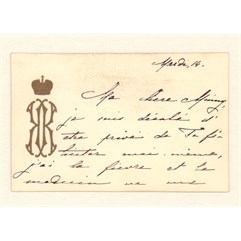 Mardi, 14.
Ma chere Minny,
je suis désolé d'
être privé de Te fé
liciter moi-même,
j'ai la fievre et le
medecin ne me